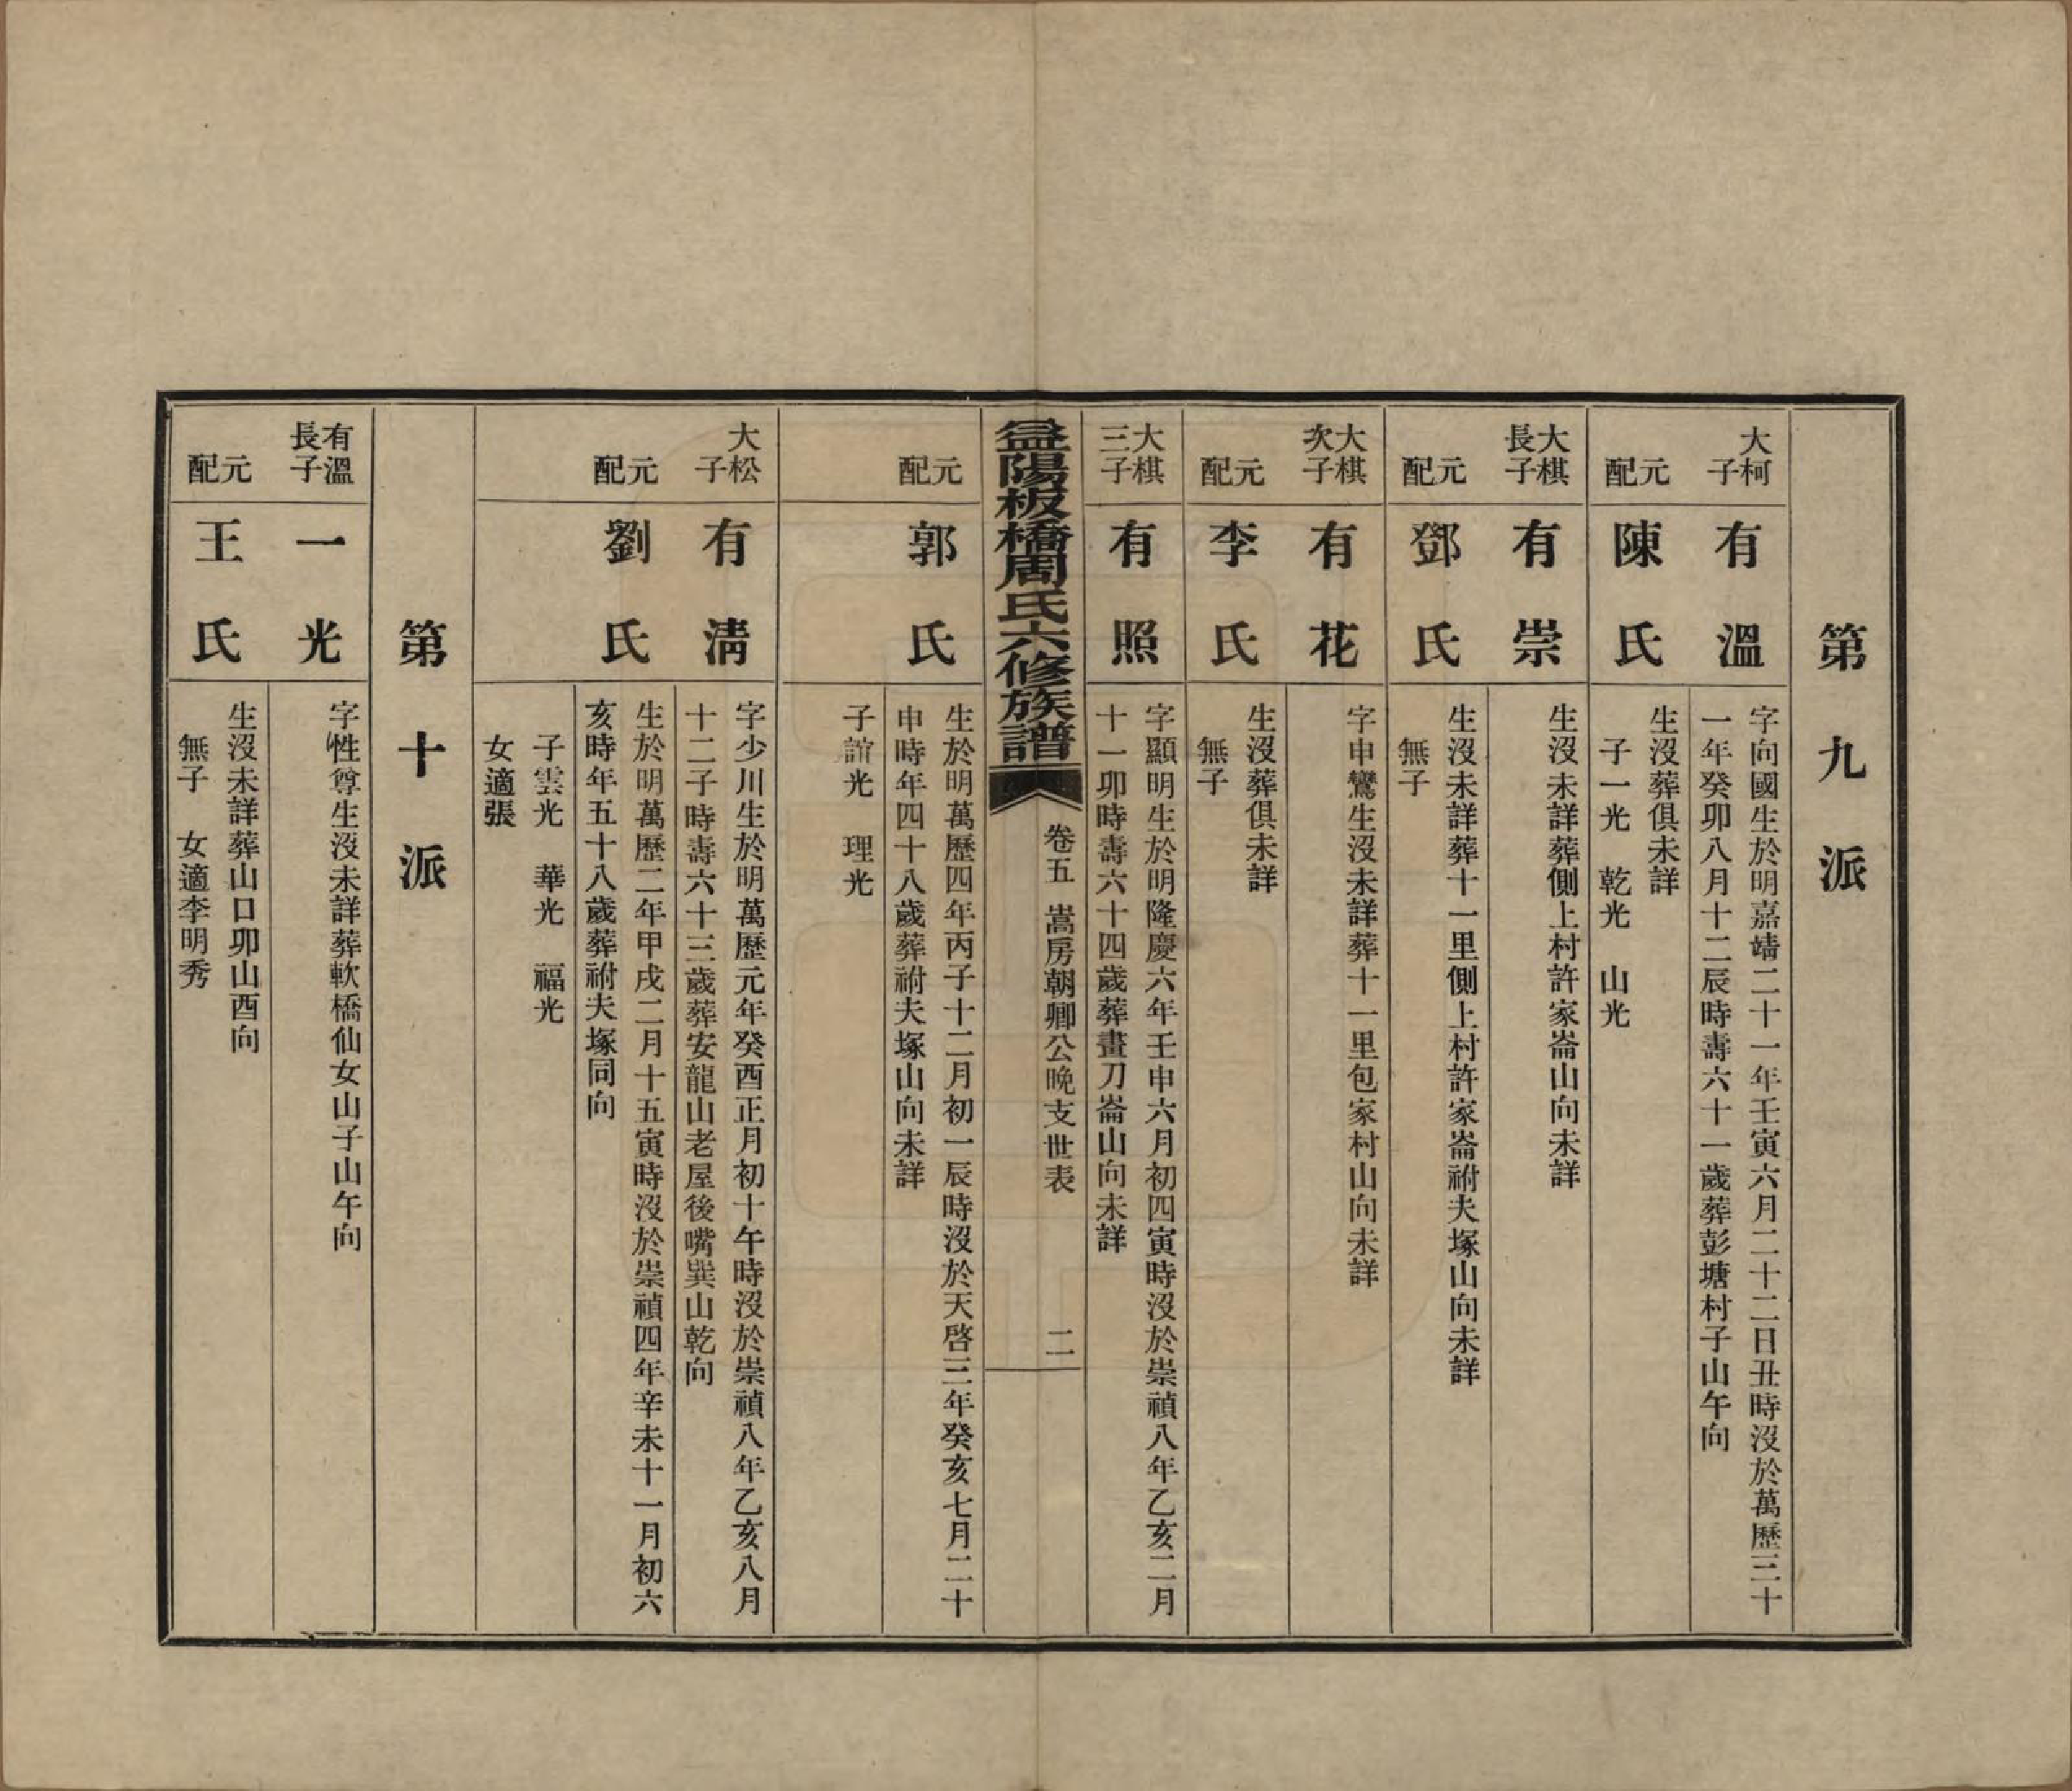 第九派
大柯子
有溫
字向國生於明嘉靖二十一年壬寅六月二十二日丑時沒於萬歷三十
一年癸卯八月十二辰時壽六十一歲葬彭塘村子山午向
元配
陳氏
生沒葬俱未詳
子一光　乾光　山光
大棋長子
有崇
生沒未詳葬側上村許家崙山向未詳
元配
鄧氏
生沒未詳葬十一里側上村許家崙祔夫塚山向未詳
無子
大棋次子
有花
字申鸞生沒未詳葬十一里包家村山向未詳
元配
李氏
生沒葬俱未詳
無子
大棋三子
有照
字顯明生於明隆慶六年壬申六月初四寅時沒於崇禎八年乙亥二月
十一卯時壽六十四歲葬畫刀崙山向未詳
益陽板橋周氏六修族譜
卷五　嵩房朝卿公晚支世表
二
元配
郭氏
生於明萬歷四年丙子十二月初一辰時沒於天啓三年癸亥七月二十
申時年四十八歲葬祔夫塚山向未詳
子誼光　理光
大松子
有淸
字少川生於明萬歷元年癸酉正月初十午時沒於崇禎八年乙亥八月
十二子時壽六十三歲葬安龍山老屋後嘴巽山乾向
元配
劉氏
生於明萬歷二年甲戌二月十五寅時沒於崇禎四年辛未十一月初六
亥時年五十八歲葬祔夫塚同向
子雲光　華光　福光
女適張
第十派
有溫長子
一光
字性尊生沒未詳葬軟橋仙女山子山午向
元配
王氏
生沒未詳葬山口卯山酉向
無子　女適李明秀